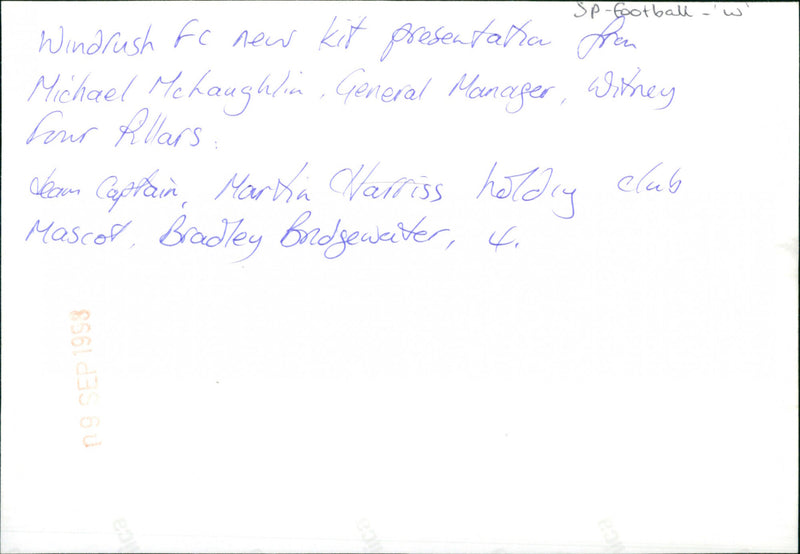 SP-Football - 'W'
Windrush FC new kit presentation from
Michael McLaughlin, General Manager, Witney
Four Pillars.
Team Captain, Martin Harriss holding club
Mascot, Bradley Bridgewater, 4.
09 SEP 1998